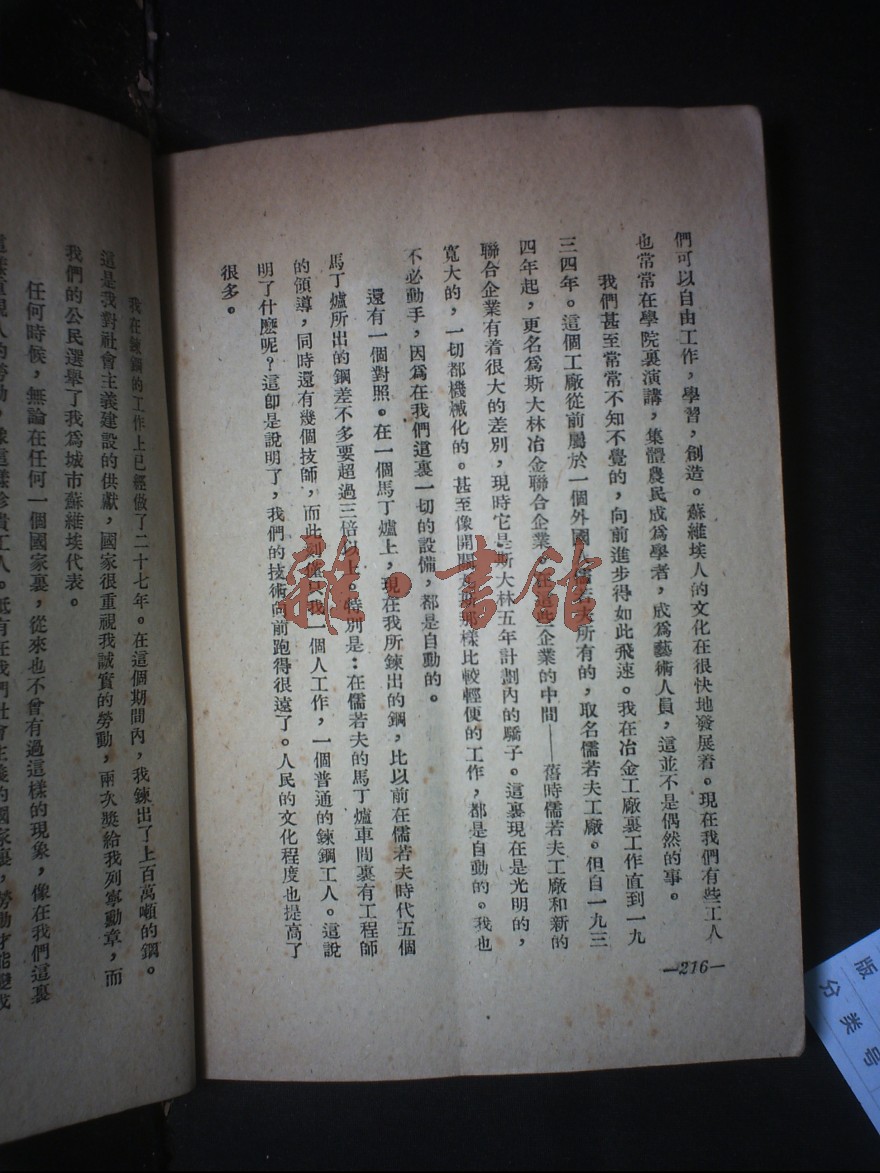 們可以自由工作，學習，創造。蘇維埃人的文化在很快地發展着。現在我們有些工人
也常常在學院裏演講，集體農民成爲學者，成爲藝術人員，這並不是偶然的事。
我們甚至常常不知不覺的，向前進步得如此飛速。我在冶金工廠裏工作直到一九
三四年。這個工廠從前屬於一個外國人儒若夫所有的，取名儒若夫工廠。但自一九三
四年起，更名爲斯大林冶金聯合企業。在這些企業的中間——舊時儒若夫工廠和新的
聯合企業有着很大的差別，現時它是斯大林五年計劃內的驕子。這裏現在是光明的，
寬大的，一切都機械化的。甚至像開關那樣比較輕便的工作，都是自動的。我也
不必動手，因爲在我們這裏一切的設備，都是自動的。
還有一個對照。在一個馬丁爐上，現在我所鍊出的鋼，比以前在儒若夫時代五個
馬丁爐所出的鋼差不多要超過三倍以上。特別是：在儒若夫的馬丁爐車間裏有工程師
的領導，同時還有幾個技師，而此刻僅只我一個人工作，一個普通的鍊鋼工人。這說
明了什麽呢？這卽是說明了，我們的技術向前跑得很遠了。人民的文化程度也提高了
很多。
—216—
我在鍊鋼的工作上已經做了二十七年。在這個期間內，我鍊出了上百萬噸的鋼。
這是我對社會主義建設的供獻，國家很重視我誠實的勞動，兩次獎給我列寧勳章，而
我們的公民選舉了我爲城市蘇維埃代表。
任何時候，無論在任何一個國家裏，從來也不曾有過這樣的現象，像在我們這裏
雜·書館
版
分类号